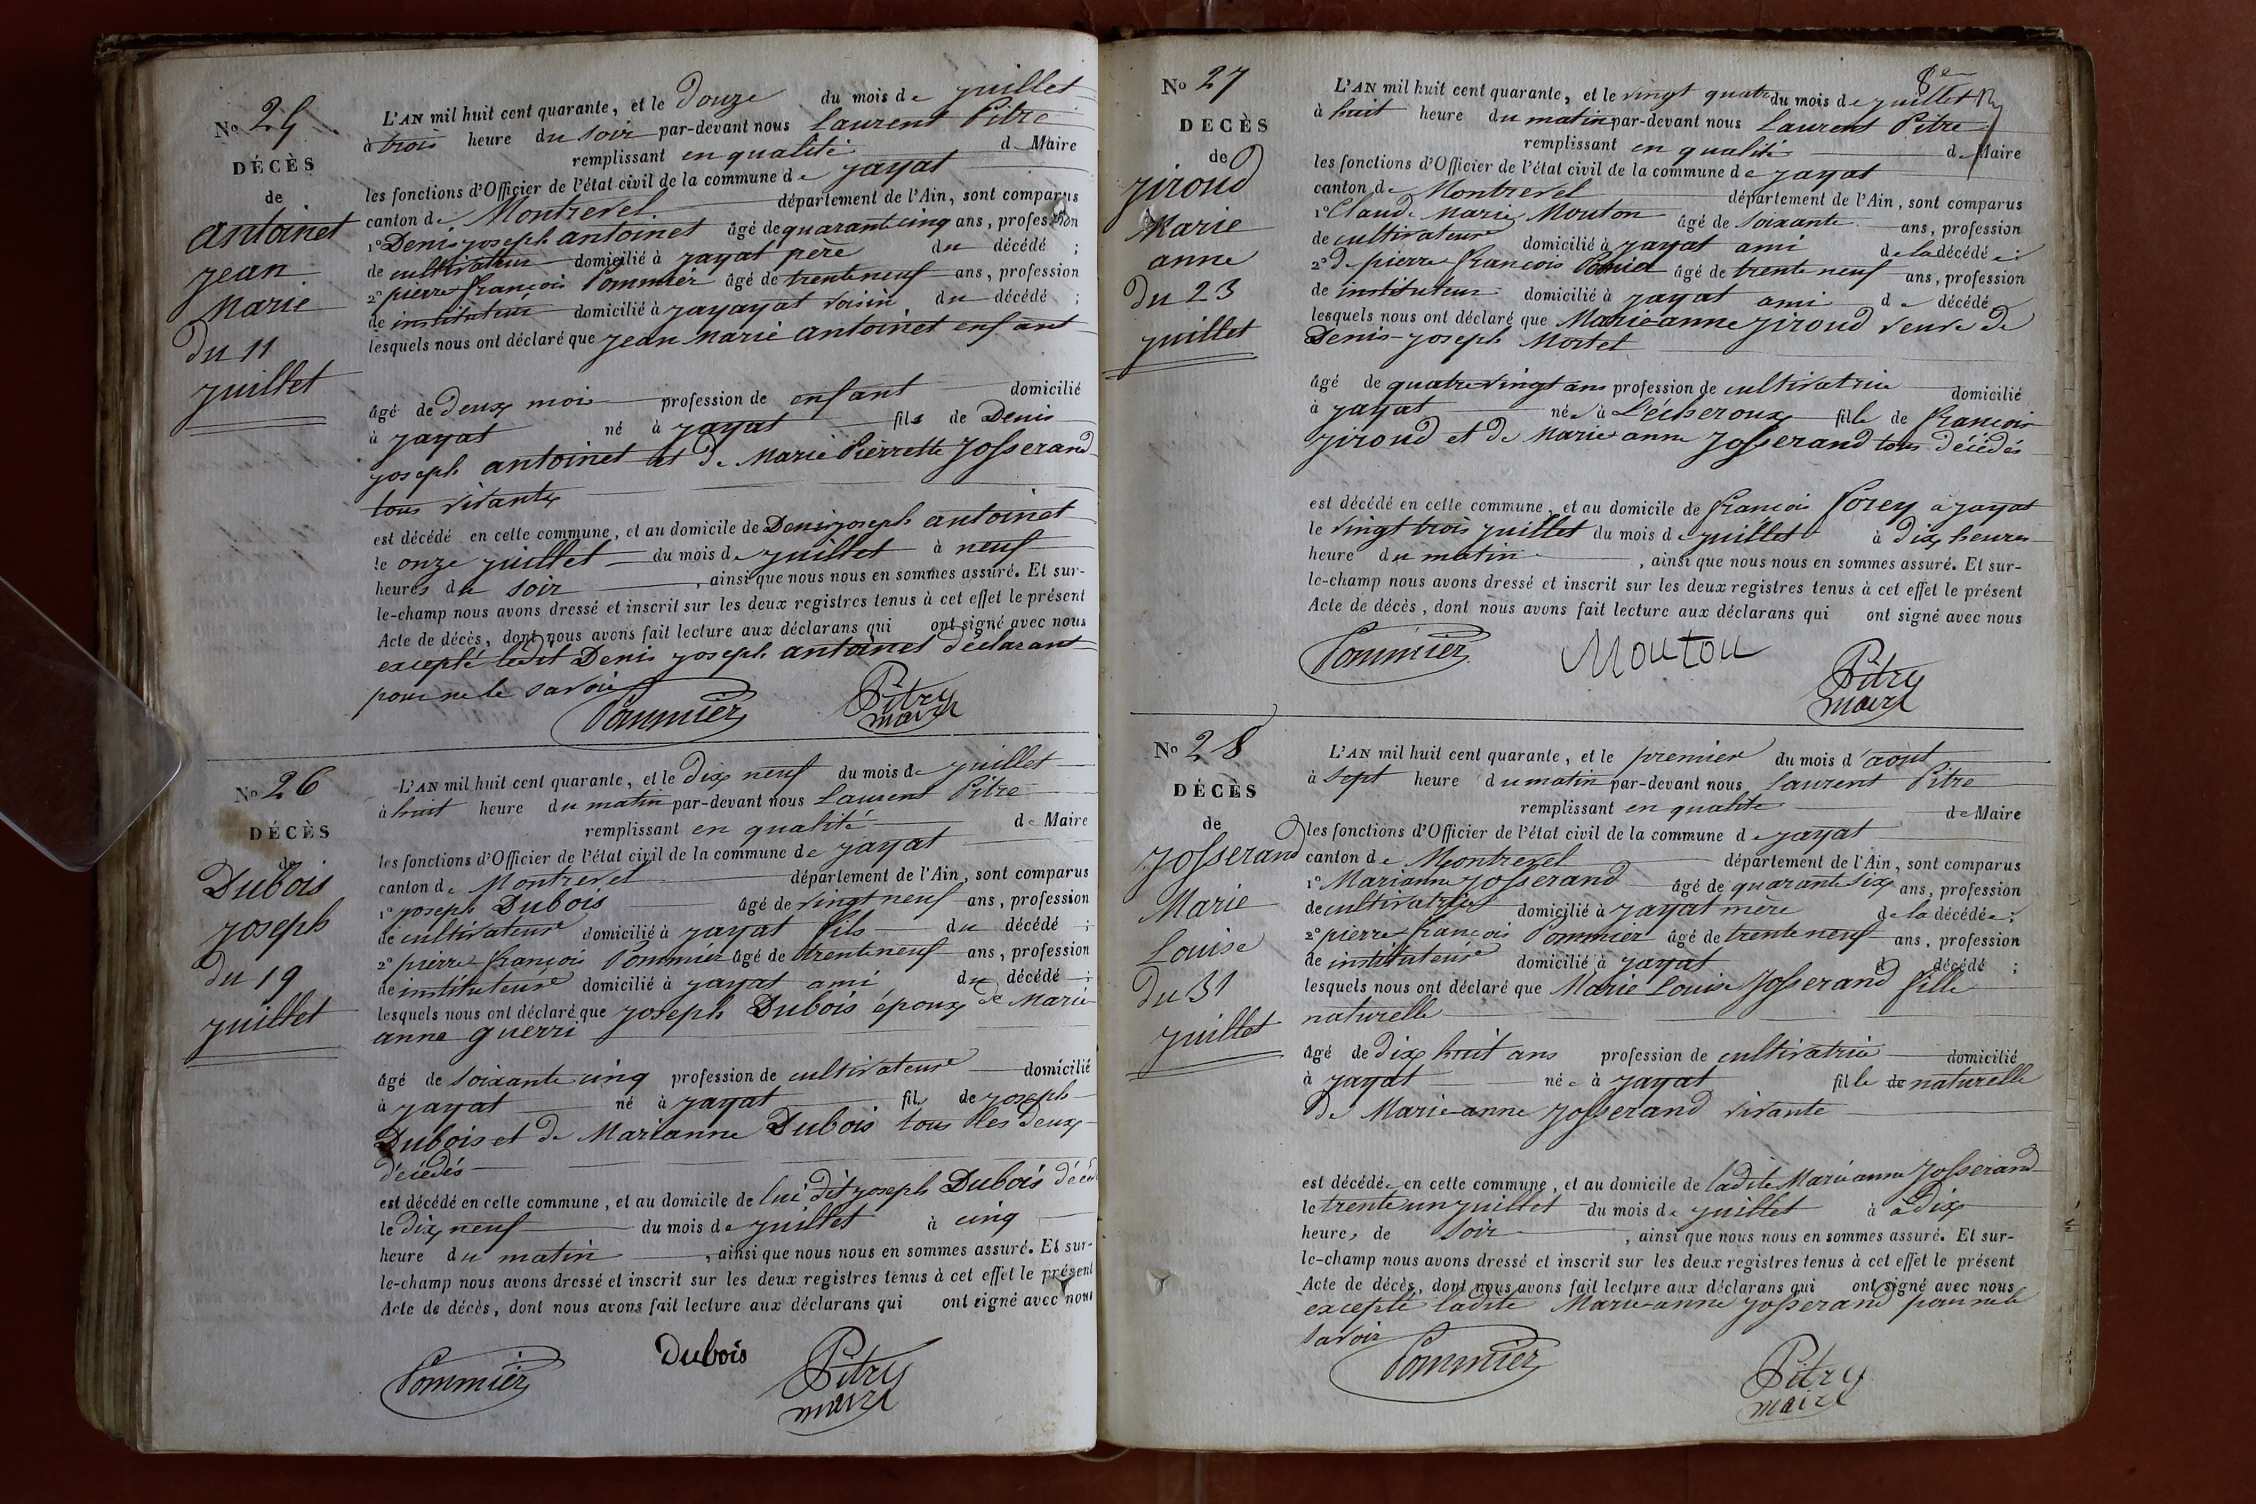 No 25
DÉCÈS
de
antoinet
jean
Marie
du 11
juillet
L'AN mil huit cent quarante, et le douze du mois de juillet
à trois heure du soir par-devant nous Laurent Pitre
remplissant en qualité de Maire
les fonctions d'Officier de l'état civil de la commune de jayat
canton de Montrevel département de l'Ain, sont comparus
1º Denis joseph antoinet âgé de quarantcinq ans, profession
de cultivateur domicilié à jayat père du décédé ;
2º pierre françois Pommier âgé de trente neuf ans, profession
de instituteur domicilié à jayayat voisin du décédé ;
lesquels nous ont déclaré que jean Marie antoinet enfant
âgé de deux mois profession de enfant domicilié
à jayat né à jayat fils de Denis
joseph antoinet et de Marie Pierrette Josserand
tous vivants
est décédé en cette commune, et au domicile de Denis joseph antoinet
le onze juillet du mois de juillet à neuf
heures du soir , ainsi que nous nous en sommes assuré. Et sur-
le-champ nous avons dressé et inscrit sur les deux registres tenus à cet effet le présent
Acte de décès, dont nous avons fait lecture aux déclarans qui ont signé avec nous
excepté ledit Denis joseph antoinet déclarant
pour ne le savoir
Pommier Pitre
maire
No 26
DÉCÈS
de
Dubois
joseph
du 19
juillet
L'AN mil huit cent quarante, et le dix neuf du mois de juillet
à huit heure du matin par-devant nous Laurent Pitre
remplissant en qualité de Maire
les fonctions d'Officier de l'état civil de la commune de jayat
canton de Montrevel département de l'Ain, sont comparus
1º joseph Dubois âgé de vingt neuf ans, profession
de cultivateur domicilié à jayat fils du décédé ;
2º pierre françois Pommier âgé de trente neuf ans, profession
de instituteur domicilié à jayat ami du décédé ;
lesquels nous ont déclaré que joseph Dubois époux de Marie
anne guerri
âgé de soixante cinq profession de cultivateur domicilié
à jayat né à jayat fils de joseph
Dubois et de Marianne Dubois tous les deux
décédés
est décédé en cette commune, et au domicile de lui dit joseph Dubois décédé
le dix neuf du mois de juillet à cinq
heure du matin , ainsi que nous nous en sommes assuré. Et sur-
le-champ nous avons dressé et inscrit sur les deux registres tenus à cet effet le présent
Acte de décès, dont nous avons fait lecture aux déclarans qui ont signé avec nous
Pommier Dubois Pitre
maire
8e
No 27
DECÈS
de
jiroud
Marie
anne
du 23
juillet
L'AN mil huit cent quarante, et le vingt quatre du mois de juillet
à huit heure du matin par-devant nous Laurent Pitre
remplissant en qualité de Maire
les fonctions d'Officier de l'état civil de la commune de jayat
canton de Montrevel département de l'Ain, sont comparus
1º Claude Marie Mouton âgé de soixante ans, profession
de cultivateur domicilié à jayat ami de la décédée ;
2º de pierre françois âgé de trente neuf ans, profession
de instituteur domicilié à jayat ami de décédé
lesquels nous ont déclaré que Marie anne jiroud veuve de
Denis joseph Mortel
âgé de quatre vingt ans profession de cultivatrice domicilié
à jayat née à L'écheroux fille de françois
jiroud et de Marie anne Josserand tous décédés
est décédé en cette commune, et au domicile de françois Porey à jayat
le vingt trois juillet du mois de juillet à dix heures
heure du matin , ainsi que nous nous en sommes assuré. Et sur-
le-champ nous avons dressé et inscrit sur les deux registres tenus à cet effet le présent
Acte de décès, dont nous avons fait lecture aux déclarans qui ont signé avec nous
Pommier Mouton Pitre
maire
No 28
DÉCÈS
de
Josserand
Marie
Louise
du 31
juillet
L'AN mil huit cent quarante, et le premier du mois d'août
à sept heure du matin par-devant nous Laurent Pitre
remplissant en qualité de Maire
les fonctions d'Officier de l'état civil de la commune de jayat
canton de Montrevel département de l'Ain, sont comparus
1º Marianne Josserand âgé de quarante six ans, profession
de cultivatrice domicilié à jayat mère de la décédée ;
2º pierre françois Pommier âgé de trente neuf ans, profession
de instituteur domicilié à jayat d décédé ;
lesquels nous ont déclaré que Marie Louise Josserand fille
naturelle
âgé de dix huit ans profession de cultivatrice domicilié
à jayat née à jayat fille de naturelle
de Marie anne Josserand vivante
est décédée en cette commune, et au domicile de ladite Marie anne Josserand
le trente un juillet du mois de juillet à à dix
heures de soir , ainsi que nous nous en sommes assuré. Et sur-
le-champ nous avons dressé et inscrit sur les deux registres tenus à cet effet le présent
Acte de décès, dont nous avons fait lecture aux déclarans qui ont signé avec nous
excepté ladite Marie anne Josserand pour ne le
savoir
Pommier Pitre
maire